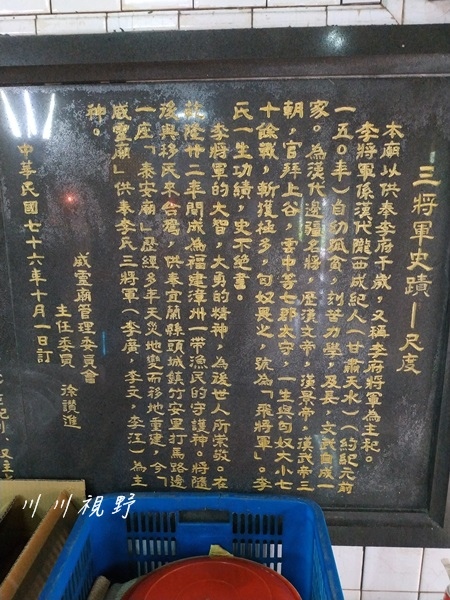 三將軍史蹟—尺度
本廟以供奉李府千歲，又稱李府將軍為主祀。
李將軍係漢代隴西成紀人（甘肅天水）（約紀元前
一五０年）自幼孤貧，刻苦力學，及長，文武西成一
家。為漢代邊疆名將，歷漢文帝，漢景帝，漢武帝三
朝，官拜上谷，雲中等七郡太守，一生與匈奴大小七
十餘戰，斬獲極多，匈奴畏之，號為「飛將軍」。李
氏一生功績，史不絕書。
李將軍的大智，大勇的精神，為後世人所崇敬。在
乾隆廿二年間成為福建漳州一帶漁民的守護神。將隨
後與移民來台灣，供奉宜蘭縣頭城鎮竹安里打馬路邊
一座「泰安廟」歷經多年天災地變而移地重建，今「
威靈廟」供奉李氏三將軍（李廣，李文，李江）為主
神。
威靈廟管理委員會
主任委員 徐讚進
中華民國七十六年十月一日訂
川川視野